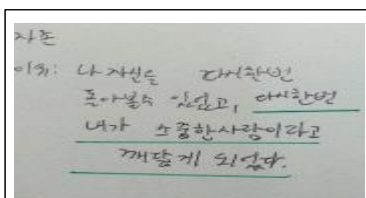 자존
이유: 나 자신을 다시한번
돌아볼수 있었고, 다시한번
내가 소중한사람이라고
깨닫게 되었다.